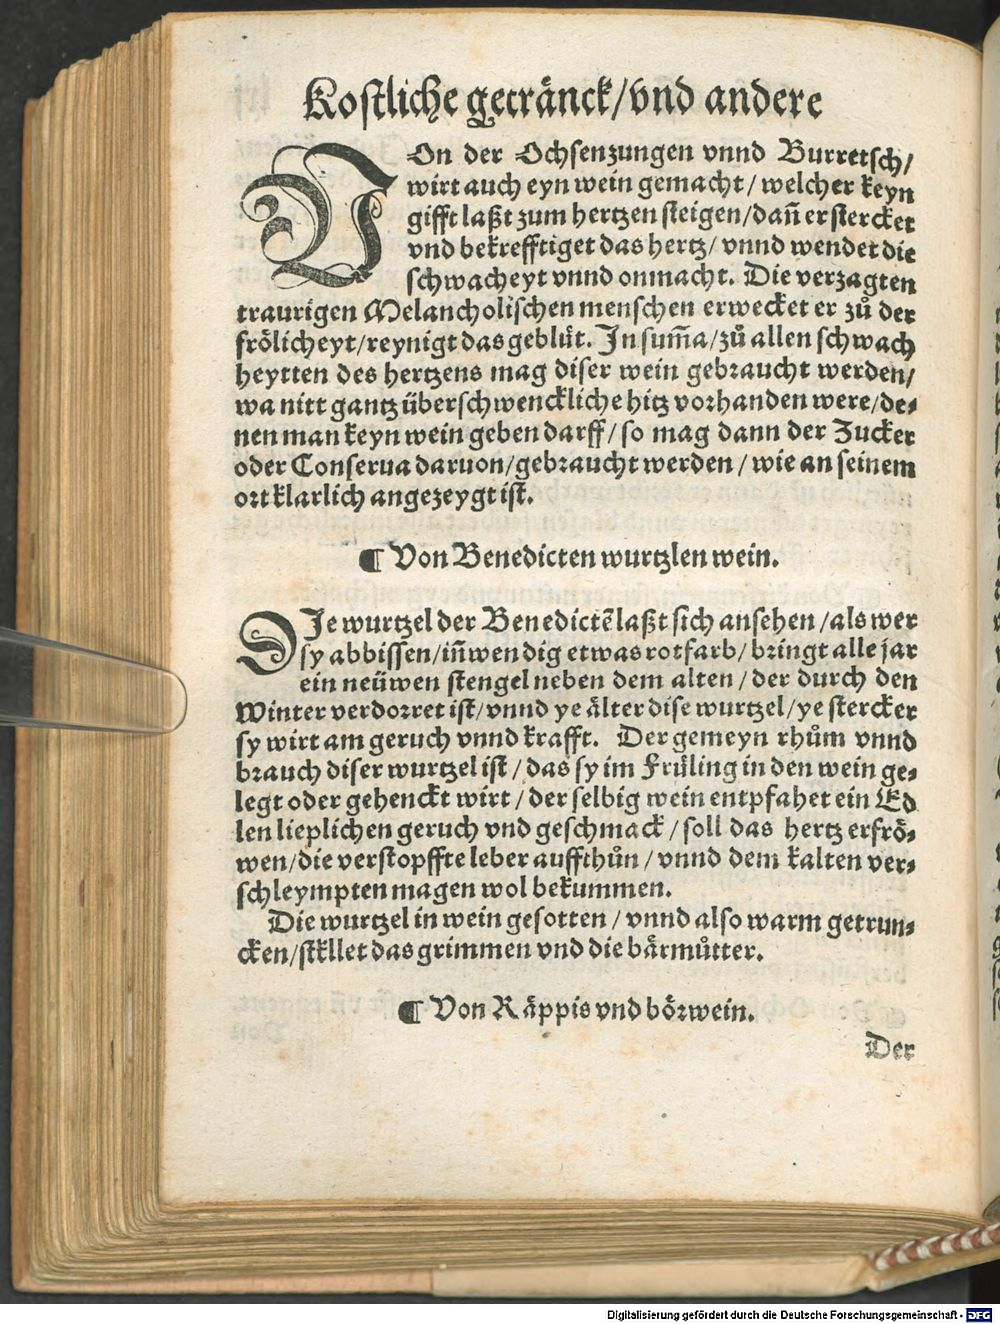 Kostliche getränck/vnd andere
VOn der Ochsenzungen vnnd Burretsch/
wirt auch eyn wein gemacht/ welcher keyn
gifft laßt zum hertzen steigen/dañ er stercket
vnd bekrefftiget das hertz/ vnnd wendet die
schwacheyt vnnd onmacht. Die verzagten
traurigen Melancholischen menschen erwecket er zů der
frölicheyt/reynigt das geblüt. In sum̃a/zů allen schwach
heytten des hertzens mag diser wein gebraucht werden/
wa nitt gantz überschwenckliche hitz vorhanden were/de⸗
nen man keyn wein geben darff/ so mag dann der Zucker
oder Conserua daruon/gebraucht werden / wie an seinem
ort klarlich angezeygt ist.
¶ Von Benedicten wurtzlen wein.
DIe wurtzel der Benedictẽ laßt sich ansehen /als wer
sy abbissen/iñwendig etwas rotfarb/ bringt alle jar
ein neüwen stengel neben dem alten / der durch den
Winter verdorret ist/vnnd ye älter dise wurtzel/ye stercker
sy wirt am geruch vnnd krafft. Der gemeyn rhům vnnd
brauch diser wurtzel ist / das sy im Früling in den wein ge⸗
legt oder gehenckt wirt / der selbig wein entpfahet ein Ed
len lieplichen geruch vnd geschmack / soll das hertz erfrö⸗
wen/die verstopffte leber auffthůn / vnnd dem kalten ver⸗
schleympten magen wol bekummen.
Die wurtzel in wein gesotten / vnnd also warm getrun⸗
cken/stkllet das grimmen vnd die bärmůtter.
¶ Von Räppis vnd börwein.
Der
Digitalisierung gefördert durch die Deutsche Forschungsgemeinschaft - DFG